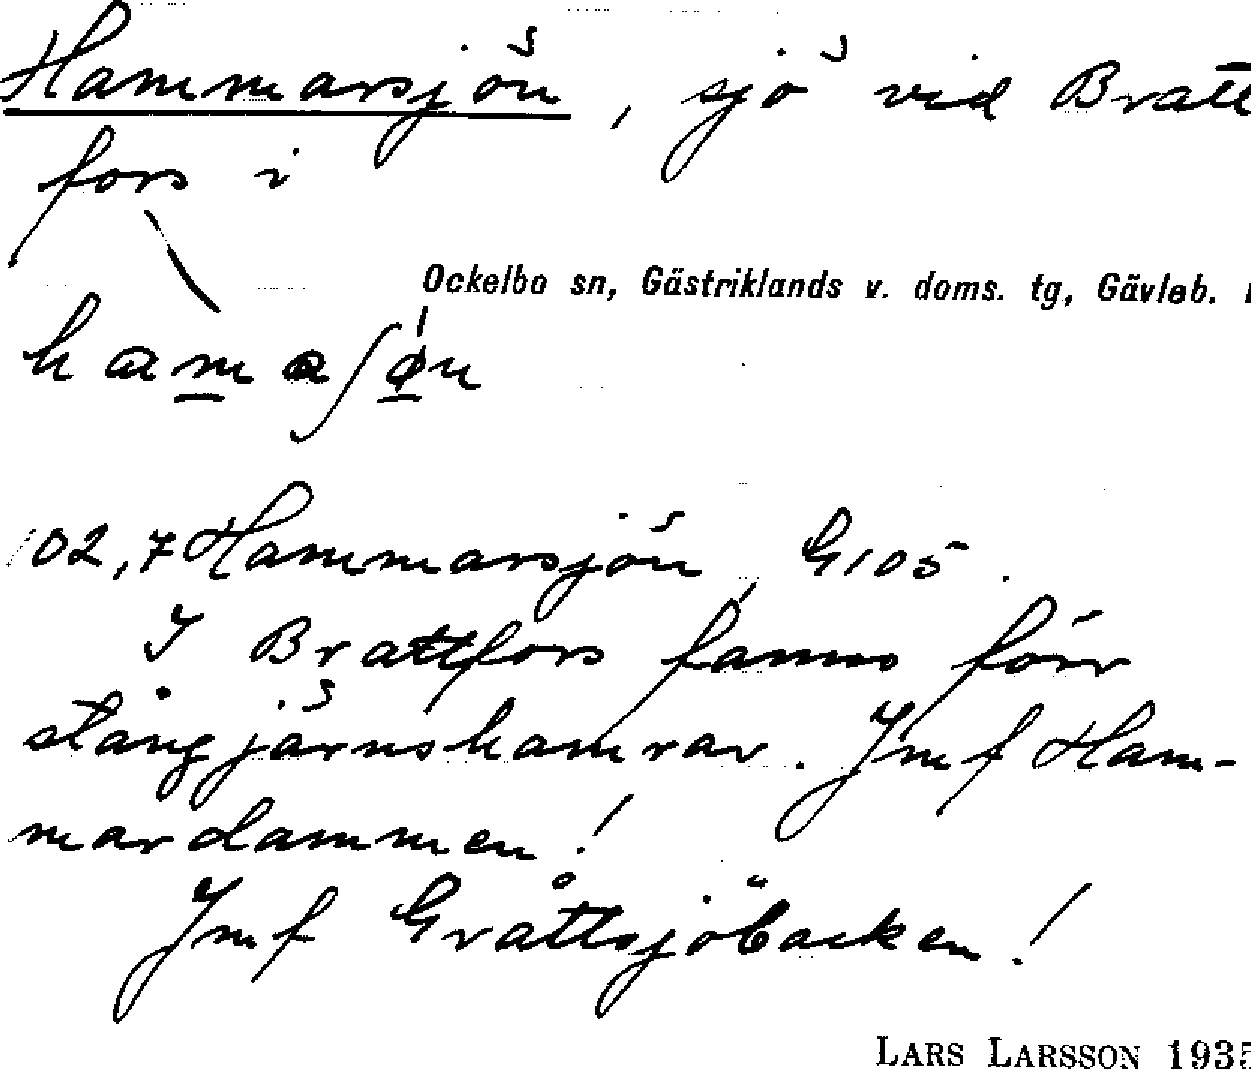 Hammarsjön, sjö vid Bratt
fors i
Ockelbo sn, Gästriklands v. doms. tg, Gävleb.
hamaʃøn
102,7 Hammarsjön, G105.
I Brattfors fanns förr
stångjärnshamrar. Jmf Ham-
mardammen!
Jmf Gråttsjöbacken!
LARS LARSSON 1935